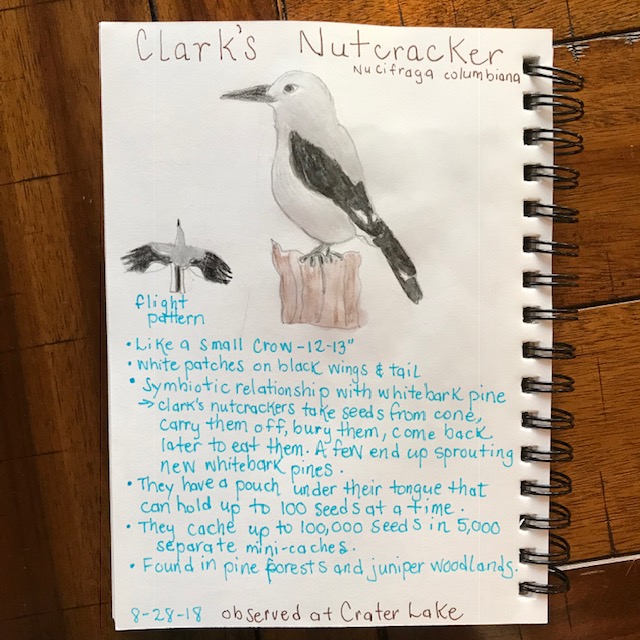 Clark's Nutcracker
Nucifraga columbiana
flight
pattern
• Like a small crow - 12-13"
• White patches on black wings & tail
• Symbiotic relationship with whitebark pine
→ Clark's nutcrackers take seeds from cone,
carry them off, bury them, come back
later to eat them. A few end up sprouting
new whitebark pines.
• They have a pouch under their tongue that
can hold up to 100 seeds at a time.
• They cache up to 100,000 seeds in 5,000
separate mini-caches.
• Found in pine forests and juniper woodlands.
8-28-18 observed at Crater Lake